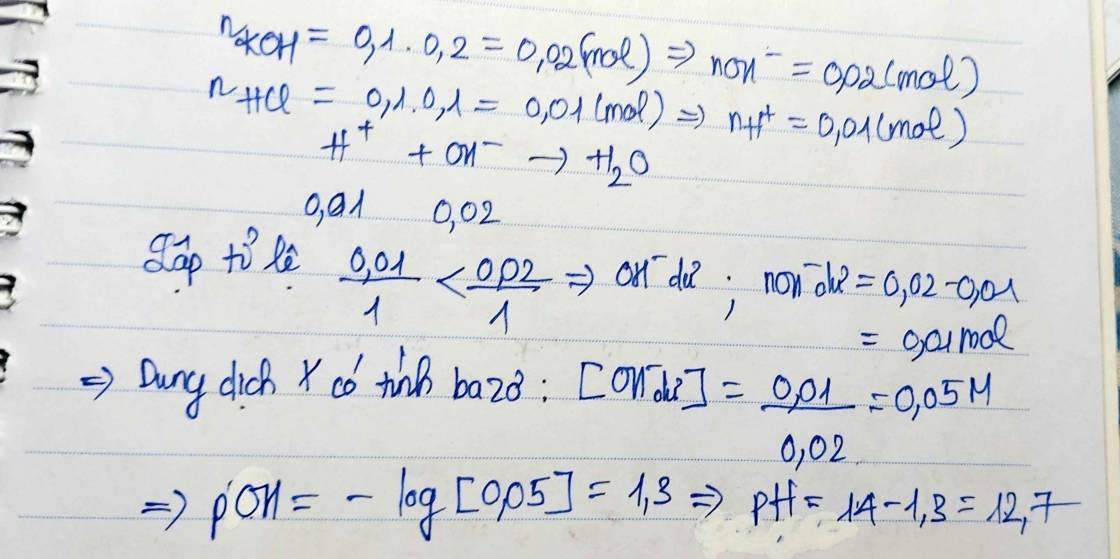 nKOH = 0,1 . 0,2 = 0,02(mol) => nOH⁻ = 0,02(mol)
nHCl = 0,1.0,1 = 0,01(mol) => nH⁺ = 0,01(mol)
H⁺ + OH⁻ → H₂O
0,01 0,02
Lập tỉ lệ 0,01/1 < 0,02/1 => OH⁻ dư ; nOH⁻dư = 0,02-0,01
= 0,01mol
=> Dung dịch X có tính bazơ : [OH⁻dư] = 0,01/0,02 = 0,05M
=> pOH = - log [0,05] = 1,3 => pH = 14-1,3 = 12,7